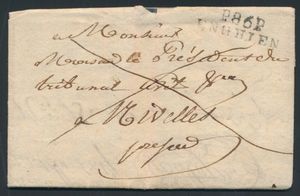 P.86.P
ENGHIEN
a Monsieur
Monsieur le Président du
tribunal
a Nivelles